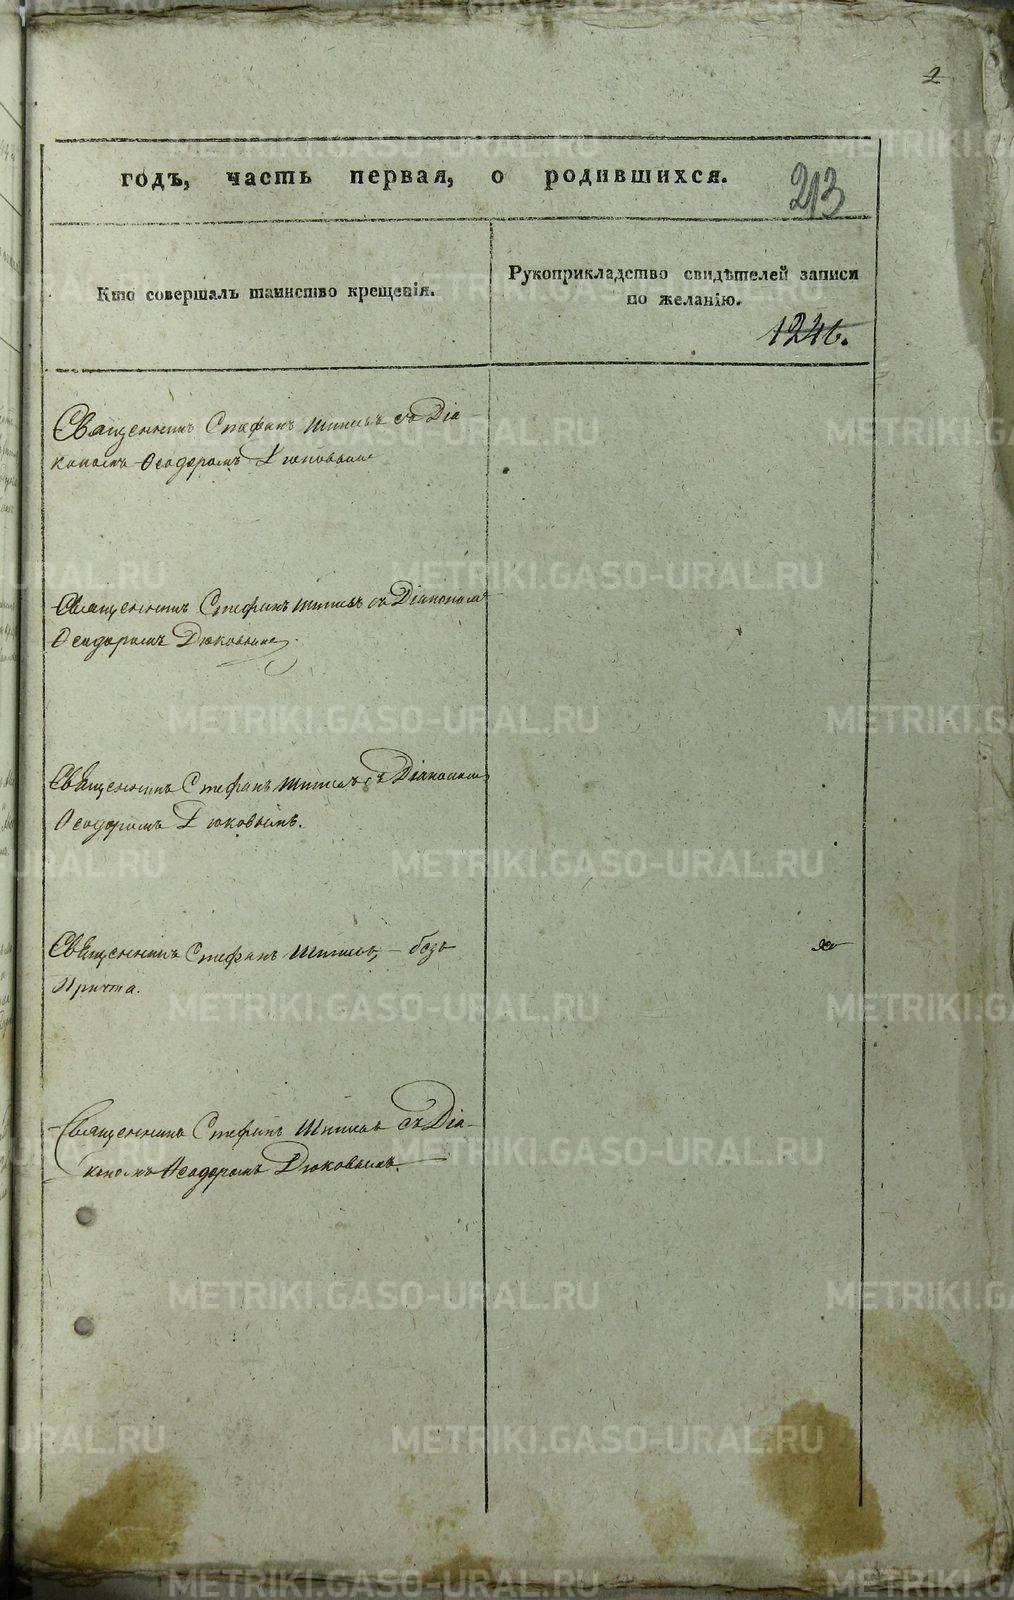 2
годъ, часть первая, о родившихся.
213
Кто совершалъ таинство крещенія.
Рукоприкладство свидѣтелей записи
по желанію.
Священникъ Стефанъ съ Діа-
кономъ Ѳеодоромъ Дюковымъ
Священникъ Стефанъ съ Діакономъ
Ѳеодоромъ Дюковымъ.
Священникъ Стефанъ съ Діакономъ
Ѳеодоромъ Дюковымъ.
Священникъ Стефанъ — безъ
Причта.
Священникъ Стефанъ съ Діа-
кономъ Ѳеодоромъ Дюковымъ.
METRIKI.GASO-URAL.RU